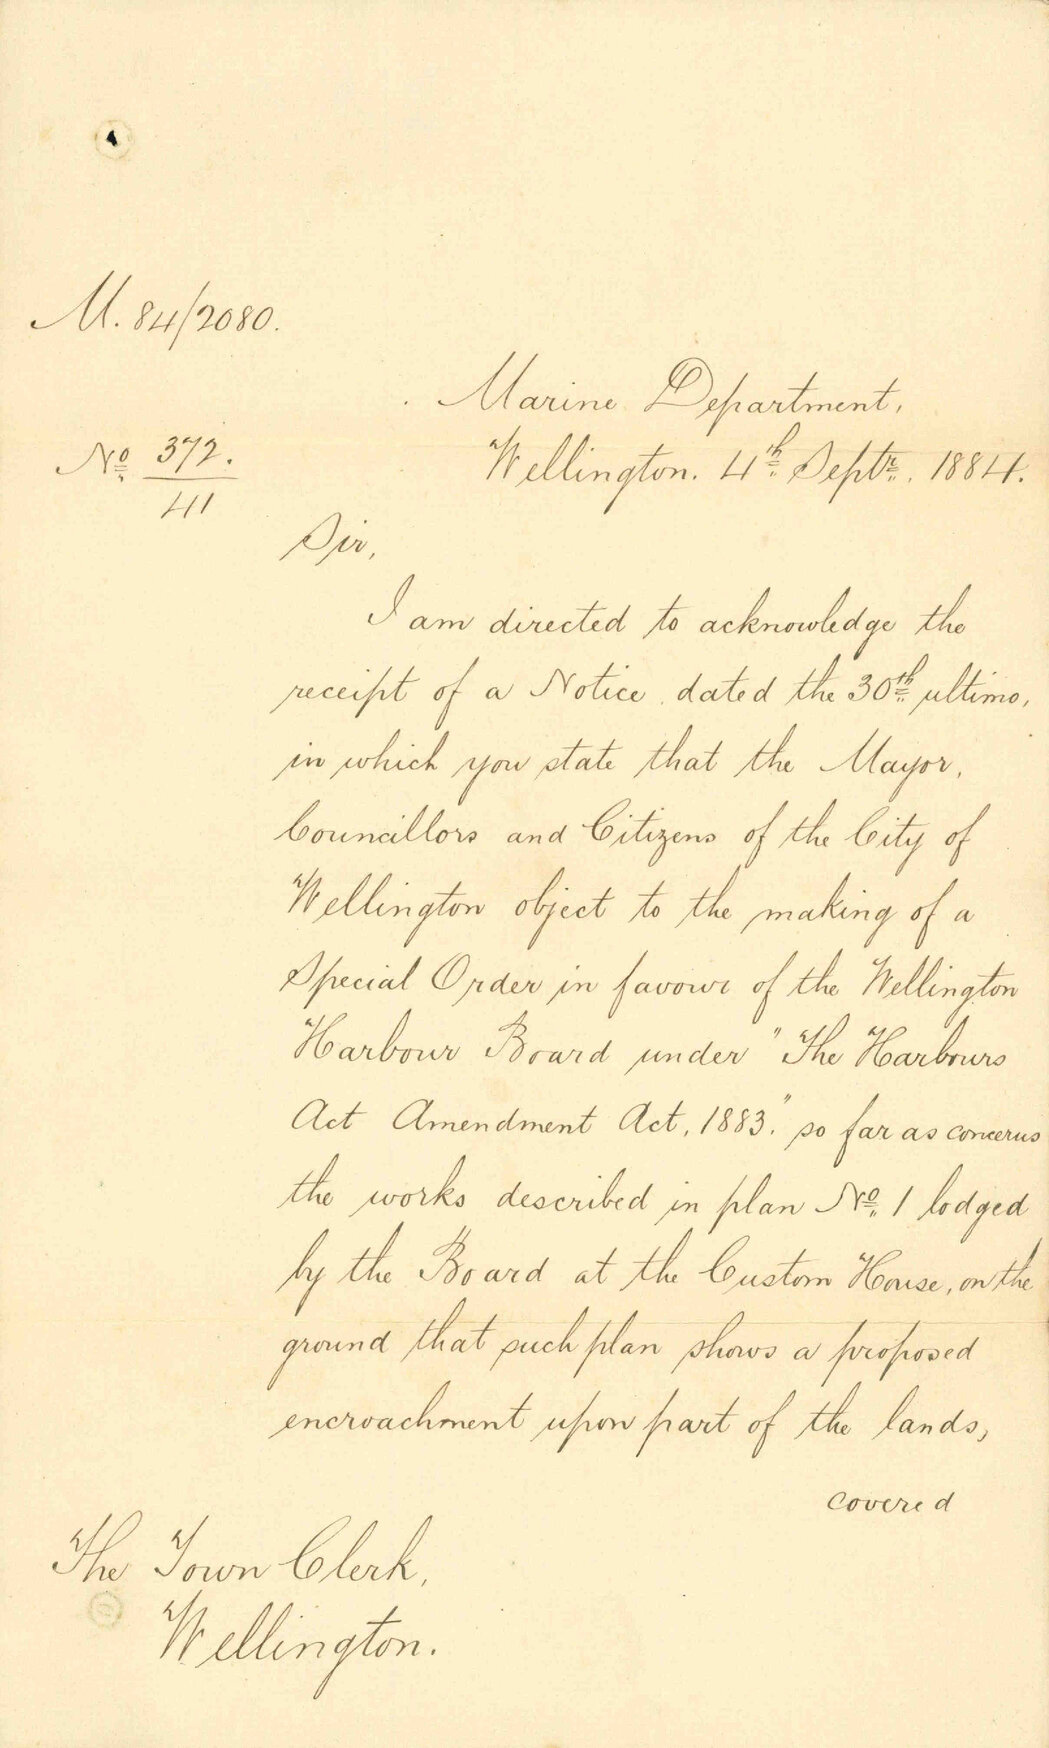 M. 84/2080.
Marine Department,
Wellington. 4th Septr. 1884.
No 372.
41
Sir,
I am directed to acknowledge the
receipt of a Notice dated the 30th ultimo,
in which you state that the Mayor,
Councillors and Citizens of the City of
Wellington object to the making of a
Special Order in favour of the Wellington
Harbour Board under "The Harbours
Act Amendment Act, 1883." so far as concerns
the works described in plan No. 1 lodged
by the Board at the Custom House, on the
ground that such plan shows a proposed
encroachment upon part of the lands,
covered
The Town Clerk,
Wellington.